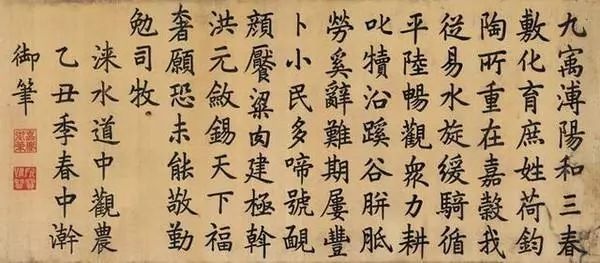 九寓溥陽和三春
敷化育庶姓荷鈞
陶所重在嘉穀我
從易水旋緩騎循
平陸暢觀衆力耕
叱犢沿蹊谷胼胝
勞奚辭難期屢豐
卜小民多啼號靦
顏饜粱肉建極幹
洪元斂錫天下福
奢願恐未能敬勤
勉司牧
淶水道中觀農
乙丑季春中澣
御筆
嘉慶御筆